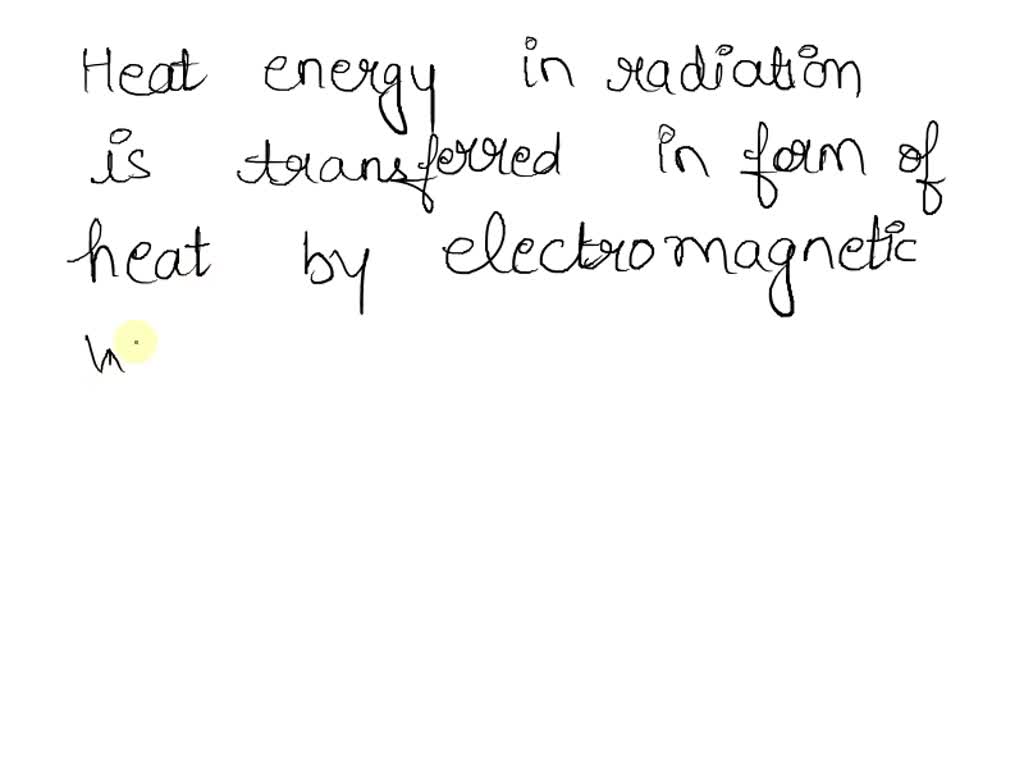 Heat energy in radiation
is transferred in form of
heat by electromagnetic